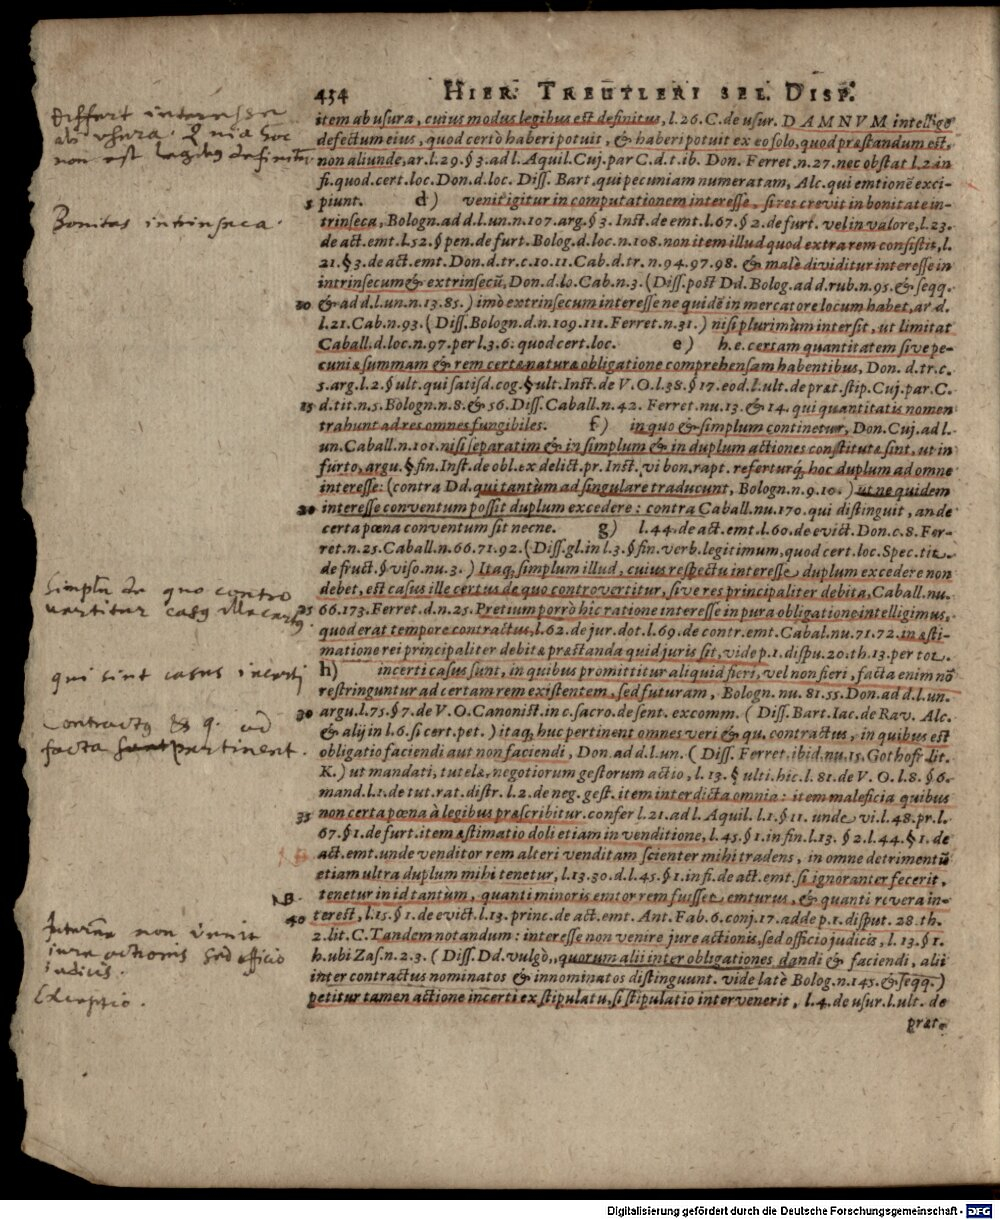 434 HIER. TREUTLERI SEL. DISP.
item ab usura, cuius modus legibus est definitus, l. 26. C. de usur. DAMNVM intellige
defectum eius, quod certò haberi potuit, & haberi potuit ex eo solo, quod præstandum est,
non aliunde, ar. l. 29. § 3. ad l. Aquil. Cuj. par C. d. t. ib. Don. Ferret. n. 27. nec obstat l. 2. in
fi. quod cert. loc. Don. d. loc. Diss. Bart. qui pecuniam numeratam, Alc. qui emtionē exci-
5 piunt. d) venit igitur in computationem interesse, si res crevit in bonitate in-
trinseca, Bologn. ad d. l. un. n. 107. arg. § 3. Inst. de emt. l. 67. § 2. de furt. vel in valore, l. 23.
de act. emt. l. 52. § pen. de furt. Bolog. d. loc. n. 108. non item illud quod extra rem consistit, l.
21. § 3. de act. emt. Don. d. tr. c. 10. 11. Cab. d. tr. n. 94. 97. 98. & malè dividitur interesse in
intrinsecum & extrinsecū, Don. d. lo. Cab. n. 3. (Diss. post Dd. Bolog. ad d. rub. n. 95. & seqq.
& ad d. l. un. n. 13. 85.) imò extrinsecum interesse ne quidē in mercatore locum habet, ar. d.
l. 21. Cab. n. 93. (Diss. Bologn. d. n. 109. 111. Ferret. n. 31.) nisi plurimùm intersit, ut limitat
Caball. d. loc. n. 97. per l. 3. 6. quod cert. loc. e) h. e. certam quantitatem sive pe-
cuniæ summam & rem certæ naturæ obligatione comprehensam habentibus, Don. d. tr. c.
5. arg. l. 2. § ult. qui satisd. cog. § ult. Inst. de V. O. l. 38. § 17. eod. l. ult. de præt. stip. Cuj. par. C.
15 d. tit. n. 5. Bologn. n. 8. & 56. Diss. Caball. n. 42. Ferret. nu. 13. & 14. qui quantitatis nomen
trahunt ad res omnes fungibiles. f) in quo & simplum continetur, Don. Cuj. ad l.
un. Caball. n. 101. nisi separatim & in simplum & in duplum actiones constitutæ sint, ut in
furto, argu. § fin. Inst. de obl. ex delict. pr. Inst. vi bon. rapt. referturq́; hoc duplum ad omne
interesse: (contra Dd. qui tantùm ad singulare traducunt, Bologn. n. 9. 10.) ut ne quidem
20 interesse conventum possit duplum excedere: contra Caball. nu. 170. qui distinguit, an de
certa pœna conventum sit necne. g) l. 44. de act. emt. l. 60. de evict. Don. c. 8. Fer-
ret. n. 25. Caball. n. 66. 71. 92. (Diss. gl. in l. 3. § fin. verb. legitimum, quod cert. loc. Spec. tit.
de fruct. § viso. nu. 3.) Itaq; simplum illud, cuius respectu interesse duplum excedere non
debet, est casus ille certus de quo controvertitur, sive res principaliter debita, Caball. nu.
25 66. 173. Ferret. d. n. 25. Pretium porrò hic ratione interesse in pura obligatione intelligimus,
quod erat tempore contractus, l. 62. de jur. dot. l. 69. de contr. emt. Cabal. nu. 71. 72. in æsti-
matione rei principaliter debitæ præstanda quid juris sit, vide p. 1. dispu. 20. th. 13. per tot.
h) incerti casus sunt, in quibus promittitur aliquid fieri, vel non fieri, facta enim nō
restringuntur ad certam rem existentem, sed futuram, Bologn. nu. 81. 55. Don. ad d. l. un.
30 argu. l. 75. § 7. de V. O. Canonist. in c. sacro. de sent. excomm. (Diss. Bart. Iac. de Rav. Alc.
& alij in l. 6. si cert. pet.) itaq; huc pertinent omnes veri & qu. contractus, in quibus est
obligatio faciendi aut non faciendi, Don. ad d. l. un. (Diss. Ferret. ibid. nu. 15. Gothofr. lit.
K.) ut mandati, tutelæ, negotiorum gestorum actio, l. 13. § ulti. hic. l. 81. de V. O. l. 8. § 6.
mand. l. 1. de tut. rat. distr. l. 2. de neg. gest. item interdicta omnia: item maleficia quibus
35 non certa pœna à legibus præscribitur. confer l. 21. ad l. Aquil. l. 1. § 11. unde vi. l. 48. pr. l.
67. § 1. de furt. item æstimatio doli etiam in venditione, l. 45. § 1. in fin. l. 13. § 2. l. 44. § 1. de
act. emt. unde venditor rem alteri venditam scienter mihi tradens, in omne detrimentū
etiam ultra duplum mihi tenetur, l. 13. 30. d. l. 45. § 1. in fi. de act. emt. si ignoranter fecerit,
tenetur in id tantum, quanti minoris emtor rem fuisset emturus, & quanti revera in-
40 terest, l. 15. § 1. de evict. l. 13. princ. de act. emt. Ant. Fab. 6. conj. 17. adde p. 1. disput. 28. th.
2. lit. C. Tandem notandum: interesse non venire jure actionis, sed officio judicis, l. 13. § 1.
h. ubi Zas. n. 2. 3. (Diss. Dd. vulgò, quorum alii inter obligationes dandi & faciendi, alii
inter contractus nominatos & innominatos distinguunt. vide latè Bolog. n. 145. & seqq.)
petitur tamen actione incerti ex stipulatu, si stipulatio intervenerit, l. 4. de usur. l. ult. de
præt.
Differt interesse
ab usura. Quia hoc
non est legibus definitum
Bonitas intrinseca.
simplum de quo contro
vertitur casus ille certus.
qui sint casus incerti
Contractus & q. ad
facta pertinent.
NB.
Interesse non venit
iure actionis sed officio
iudicis.
Exceptio.
Digitalisierung gefördert durch die Deutsche Forschungsgemeinschaft - DFG